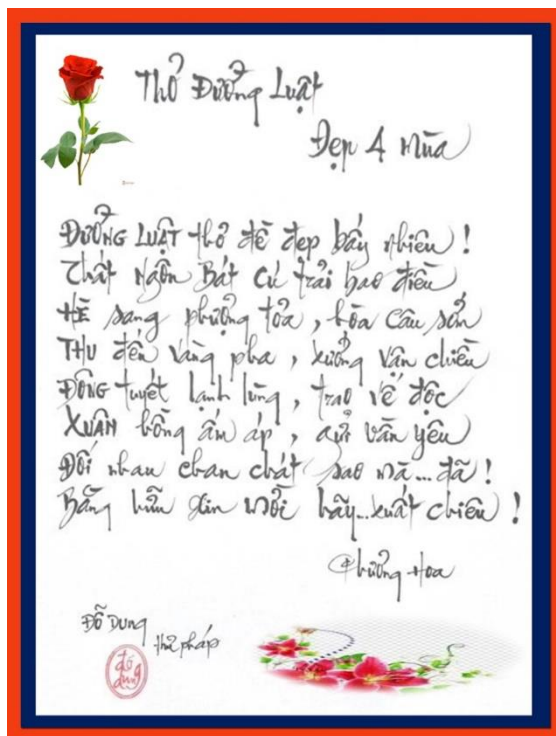 Thơ Đường Luật
Đẹp 4 Mùa
ĐƯỜNG LUẬT thơ đề đẹp bấy nhiêu !
Thất Ngôn Bát Cú trải bao điều
HÈ sang phượng tỏa , hòa câu sấn
THU đến vàng pha , xướng vận chiều
ĐÔNG tuyết lạnh lùng , trao vế độc
XUÂN hồng ấm áp , gửi vần yêu
Đối nhau chan chát sao mà... đã !
Bằng hữu xin mời hãy... xuất chiêu !
Phương Hoa
Đỗ Dung
thư pháp
đỗ
dung